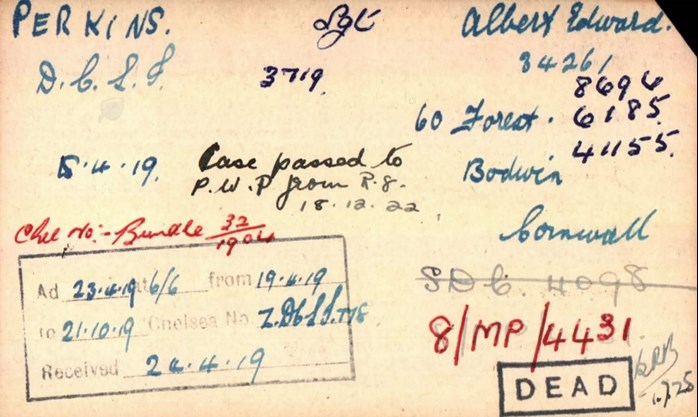 PERKINS. Sgt Albert Edward.
D.C.L.I. 3719. 34261
8694
60 Forest. 6185.
41155.
15.4.19. Case passed to Bodwin
P.W.P from R.8.
18.12.22
Chel No:- Bundle 32/1904 Cornwall
Ad 23.4.19 at 6/6 from 19.4.19
to 21.10.19 Chelsea No Z.DCLI.778.
SDC. 4098
Received 24.4.19
8/MP/4431
DEAD